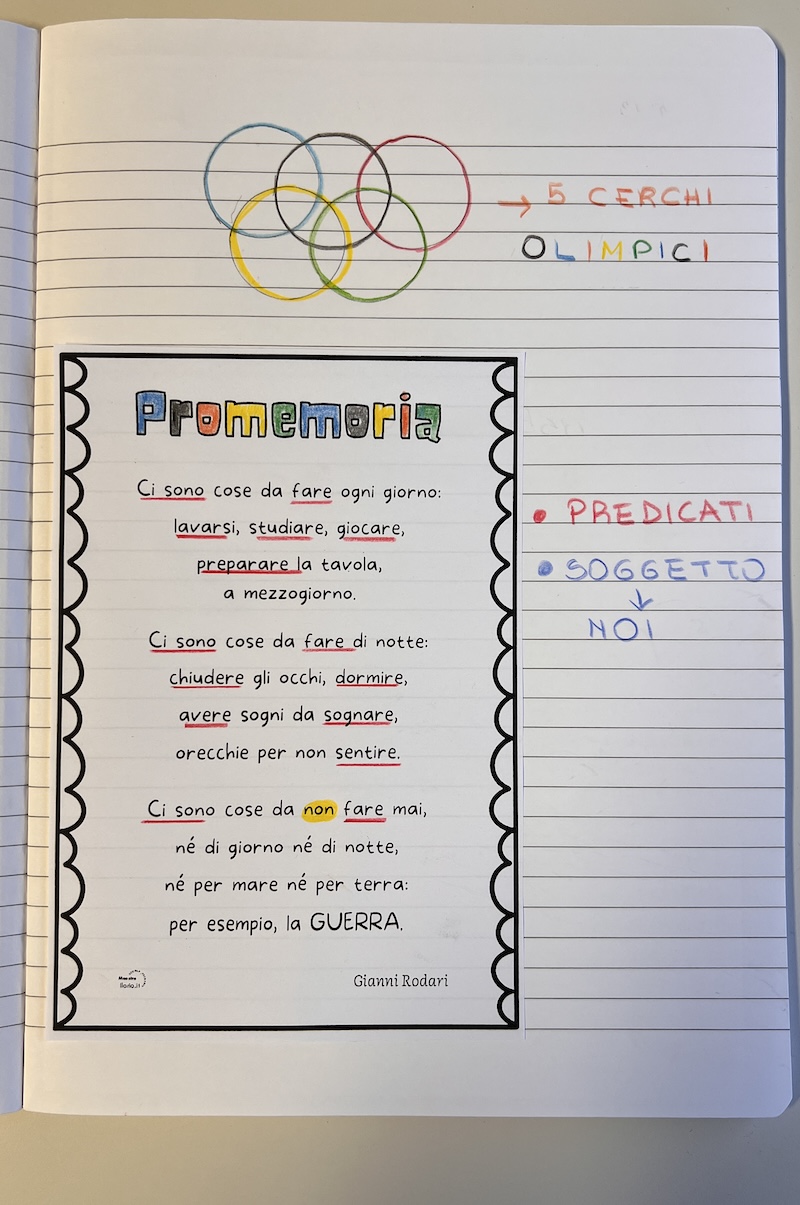 → 5 CERCHI
OLIMPICI
Promemoria
Ci sono cose da fare ogni giorno:
lavarsi, studiare, giocare,
preparare la tavola,
a mezzogiorno.
Ci sono cose da fare di notte:
chiudere gli occhi, dormire,
avere sogni da sognare,
orecchie per non sentire.
Ci sono cose da non fare mai,
né di giorno né di notte,
né per mare né per terra:
per esempio, la GUERRA.
Gianni Rodari
• PREDICATI
• SOGGETTO
↓
NOI